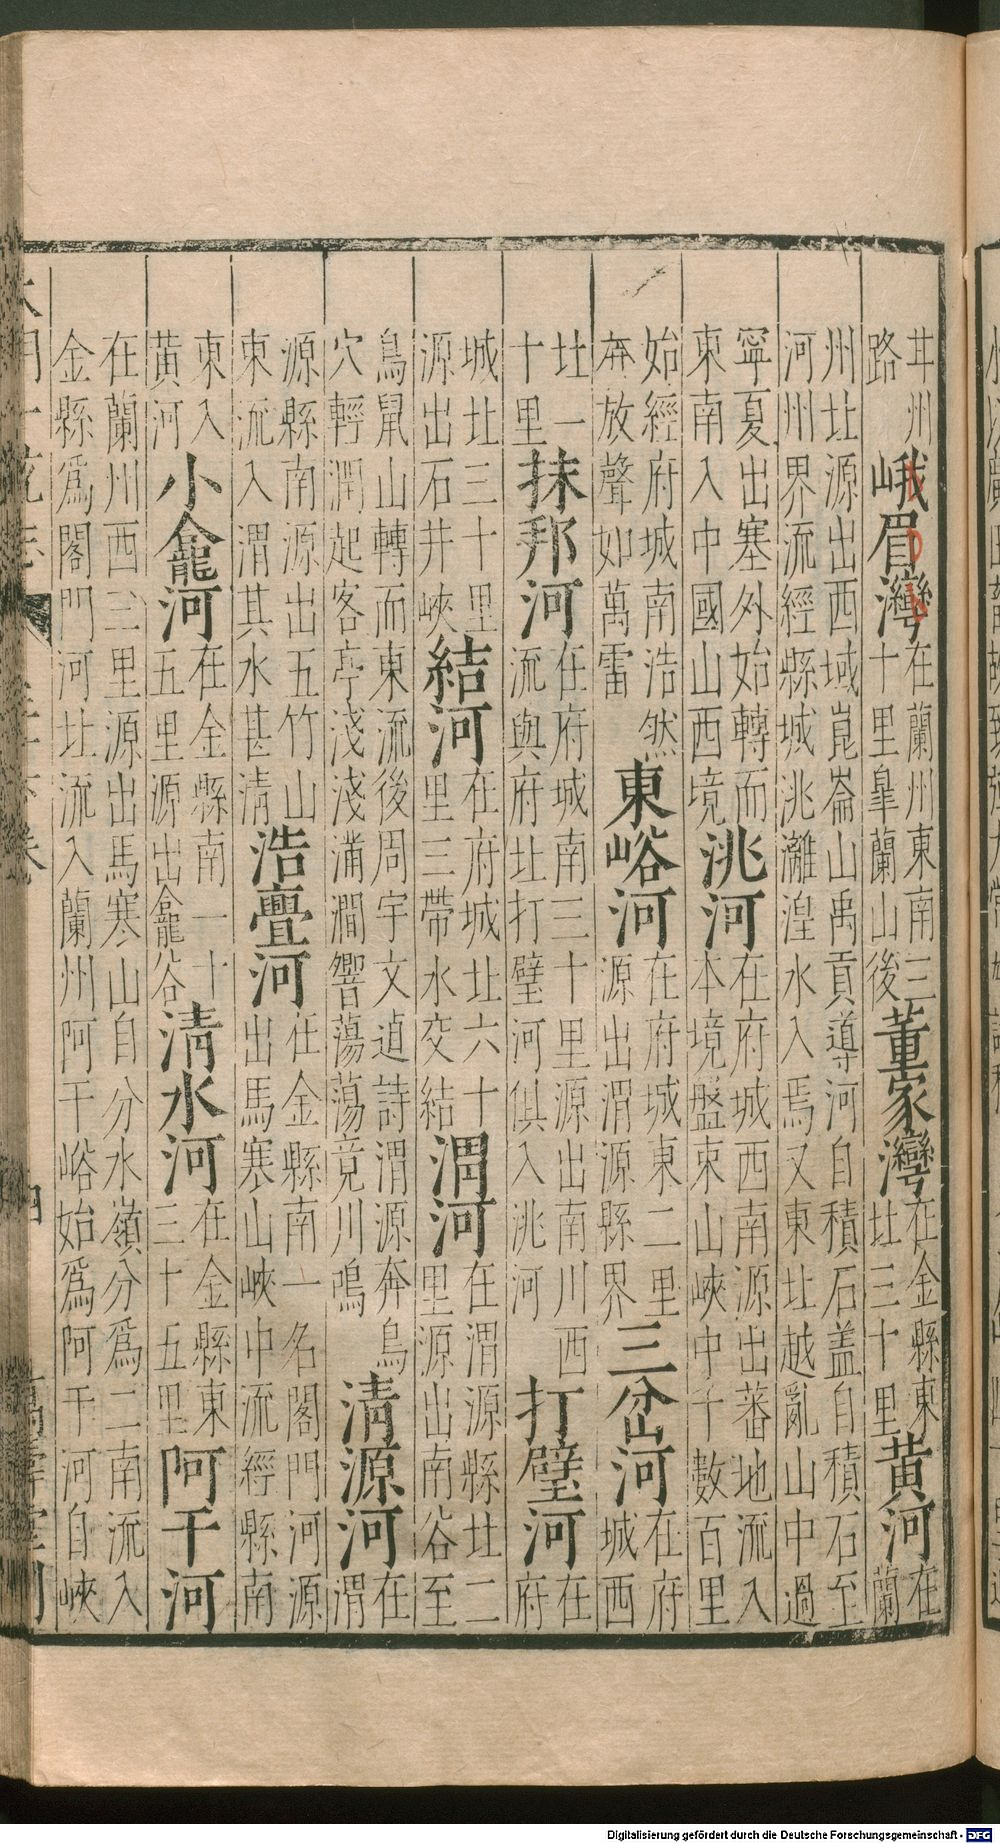 井州路峨眉灣在蘭州東南三十里皐蘭山後董家灣在金縣東北三十里黄河在蘭
州北源出西域崑崙山禹貢導河自積石盖自積石至河州界流經縣城洮灕湟水入焉又東北越亂山中過
寧夏出塞外始轉而東南入中國山西境洮河在府城西南源出蕃地流入本境盤束山峽中千數百里
始經府城南浩然奔放聲如萬雷東峪河在府城東二里源出渭源縣界三岔河在府城西
北一十里抹邦河在府城南三十里源出南川西流與府北打壁河俱入洮河打壁河在府
城北三十里源出石井峽結河在府城北六十里三帶水交結渭河在渭源縣北二里源出南谷至
鳥鼠山轉而東流後周宇文逌詩渭源奔鳥穴輕瀾起客亭淺淺滿澗響蕩蕩竟川鳴清源河在渭
源縣南源出五竹山東流入渭其水甚清浩亹河在金縣南一名閣門河源出馬寒山峽中流經縣南
東入黄河小龕河在金縣南一十五里源出龕谷清水河在金縣東三十五里阿干河
在蘭州西三里源出馬寒山自分水嶺分爲二南流入金縣爲閣門河北流入蘭州阿干峪始爲阿干河自峽
Digitalisierung gefördert durch die Deutsche Forschungsgemeinschaft - DFG